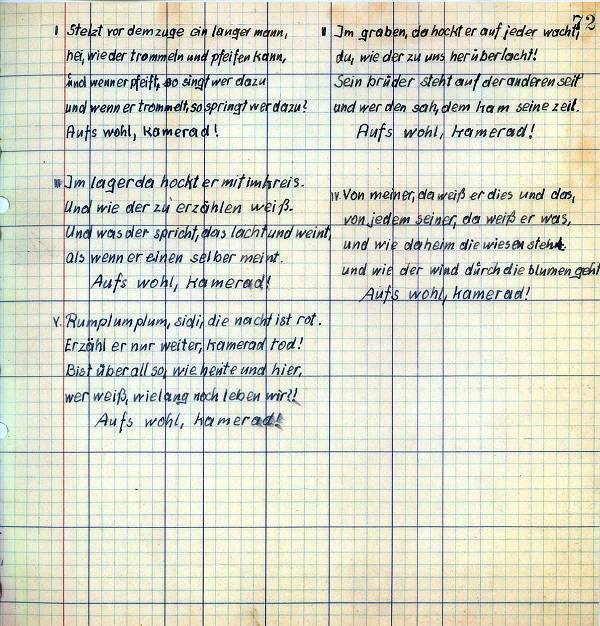 72
I Stelzt vor dem zuge ein langer mann,
hei, wie der trommeln und pfeifen kann,
und wenn er pfeift, so singt wer dazu
und wenn er trommelt, so springt wer dazu!
Aufs wohl, kamerad!
II Im graben, da hockt er auf jeder wacht,
du, wie der zu uns herüberlacht!
Sein brüder steht auf der anderen seit'
und wer den sah, dem kam seine zeit.
Aufs wohl, kamerad!
III Im lager da hockt er mit im kreis.
Und wie der zu erzählen weiß.
Und was der spricht, das lacht und weint,
als wenn er einen selber meint.
Aufs wohl, kamerad!
IV. Von meiner, da weiß er dies und das,
von jedem seiner, da weiß er was,
und wie daheim die wiesen stehn
und wie der wind durch die blumen geht
Aufs wohl, kamerad!
V. Rumplumplum, sidi, die nacht ist rot.
Erzähl er nur weiter, kamerad tod!
Bist überall so, wie heute und hier,
wer weiß, wie lang noch leben wir?!
Aufs wohl, kamerad!